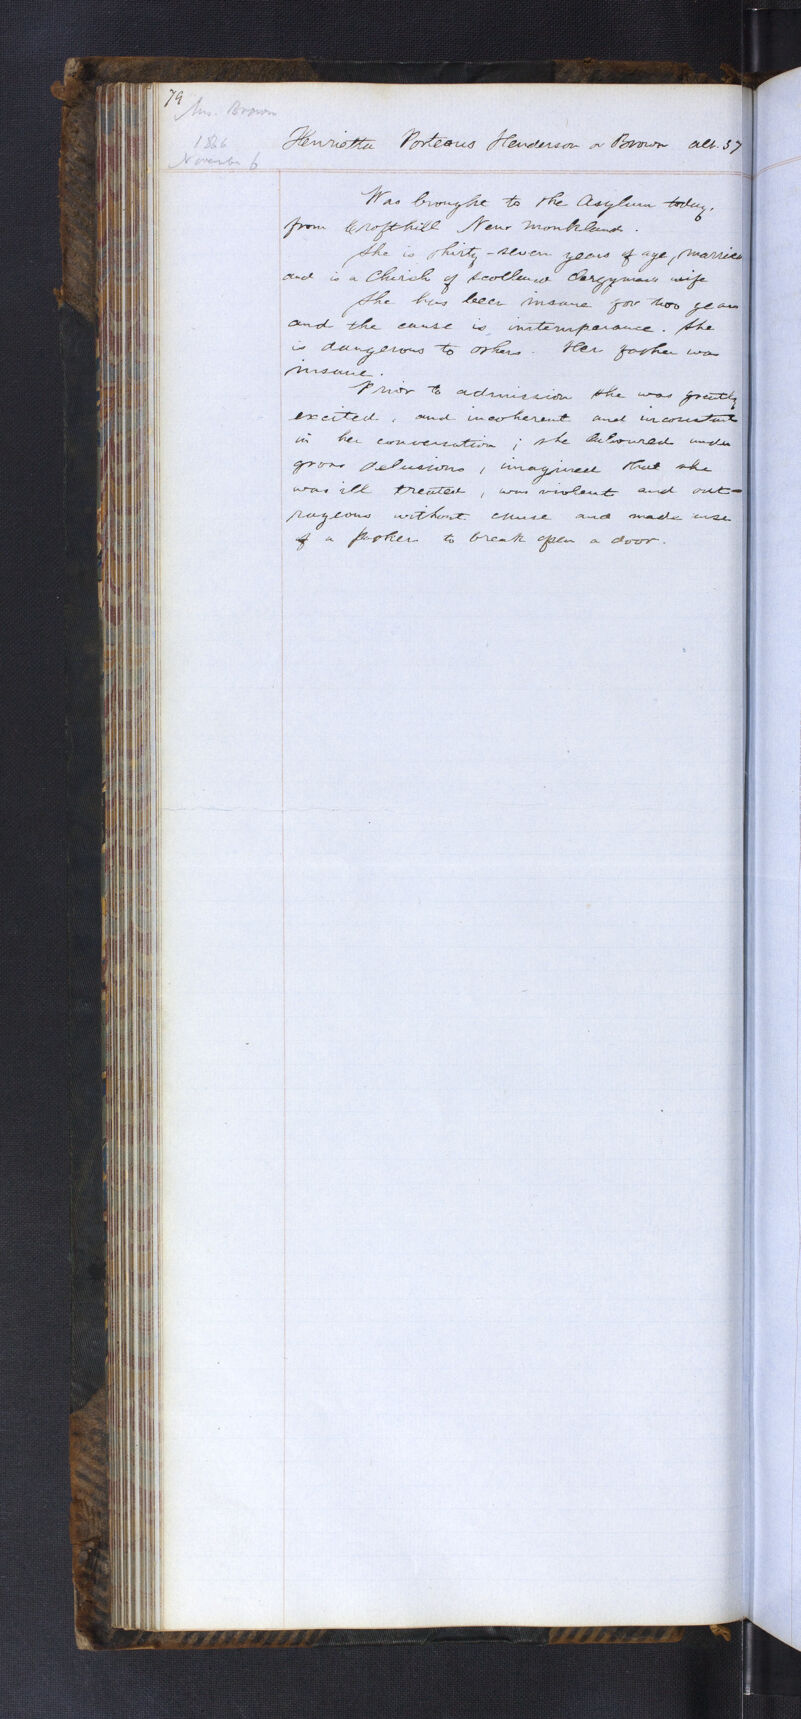 79
Mrs. Brown
1866
November 6
Henrietta Porteous Henderson or Brown aet. 37
Was brought to the Asylum today,
from Crofthill New Monkland.
She is thirty-seven years of age, married
and is a Church of Scotland Clergymans wife
She has been insane for two years
and the cause is intemperance. She
is dangerous to others. Her father was
insane.
Prior to admission she was greatly
excited, and incoherent and inconstant
in her conversation; she laboured under
gross delusions, imagined that she
was ill treated, was violent and out-
rageous without cause and made use
of a poker to break open a door.